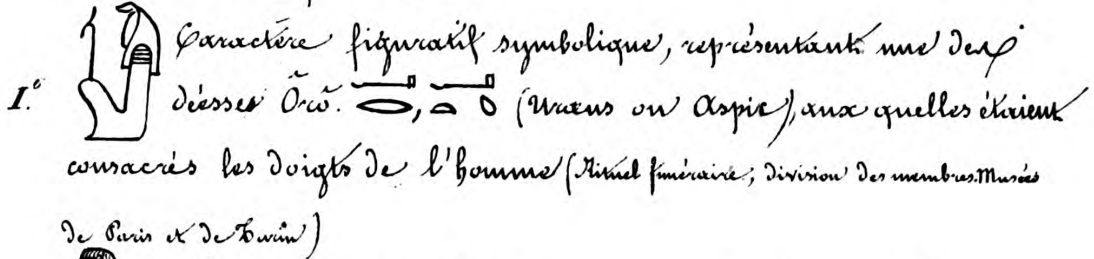 Caractère figuratif symbolique, représentant une des
I.° déesses Ôrô. (Uræus ou Aspic), aux quelles étaient
consacrés les doigts de l'homme (Rituel funéraire; division des membres. Musées
de Paris et de Turin)